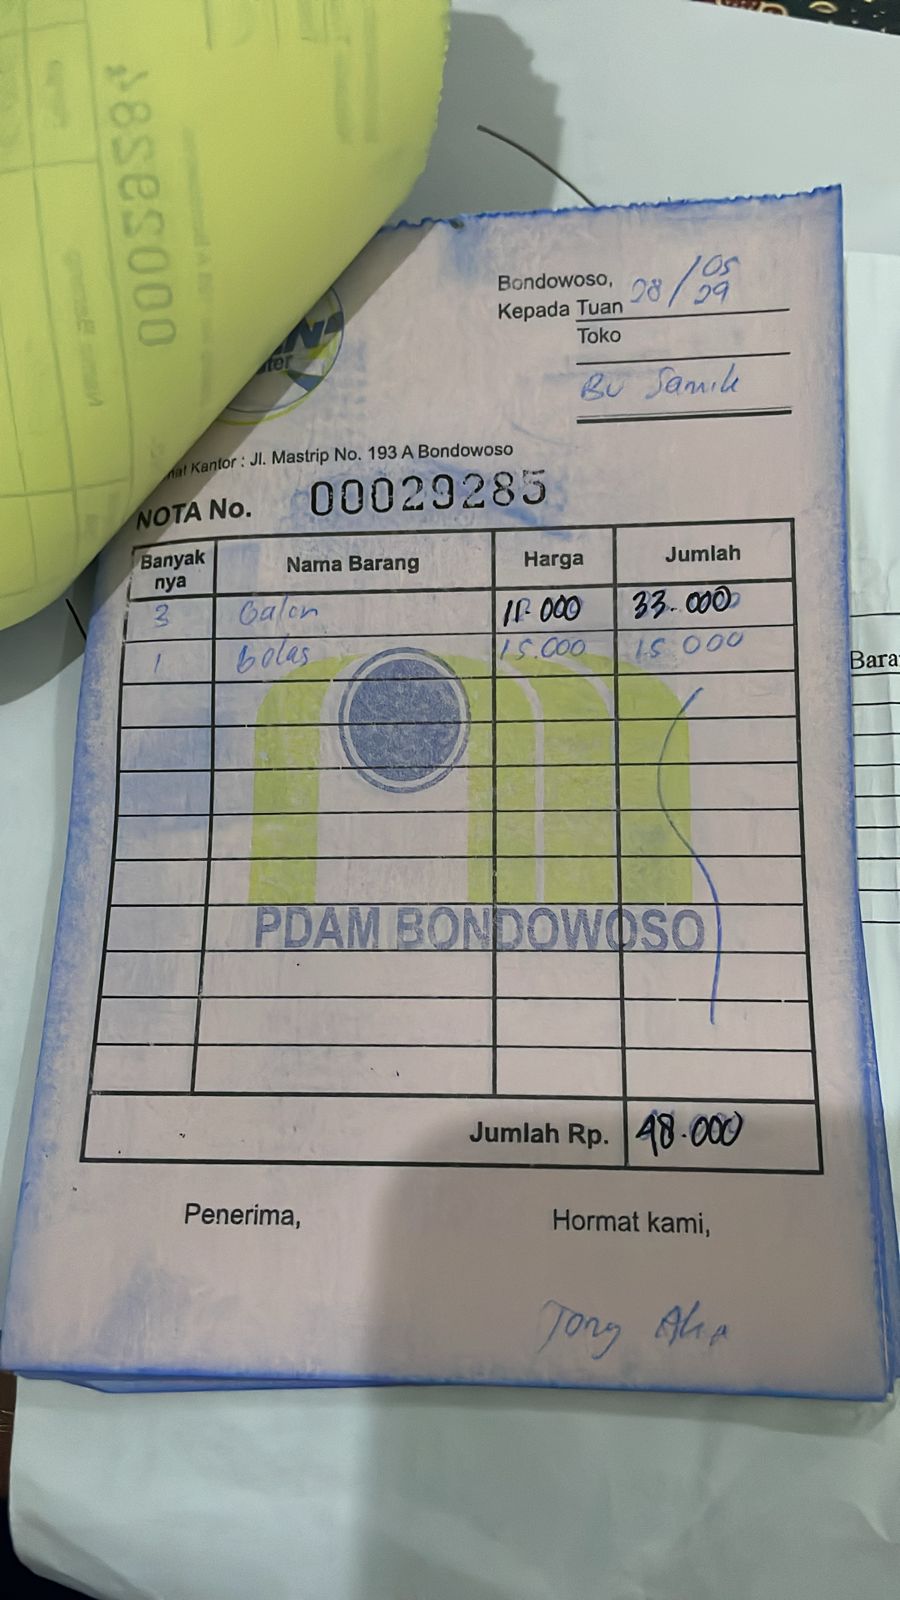 00029284
Bondowoso, 28/05
29
Kepada Tuan
Toko
Bu Samik
Kantor : Jl. Mastrip No. 193 A Bondowoso
NOTA No. 00029285
Banyak nya Nama Barang Harga Jumlah
3 Galon 11.000 33.000
1 Gelas 15.000 15 000
PDAM BONDOWOSO
Jumlah Rp. 48.000
Penerima, Hormat kami,
Tony
Bara